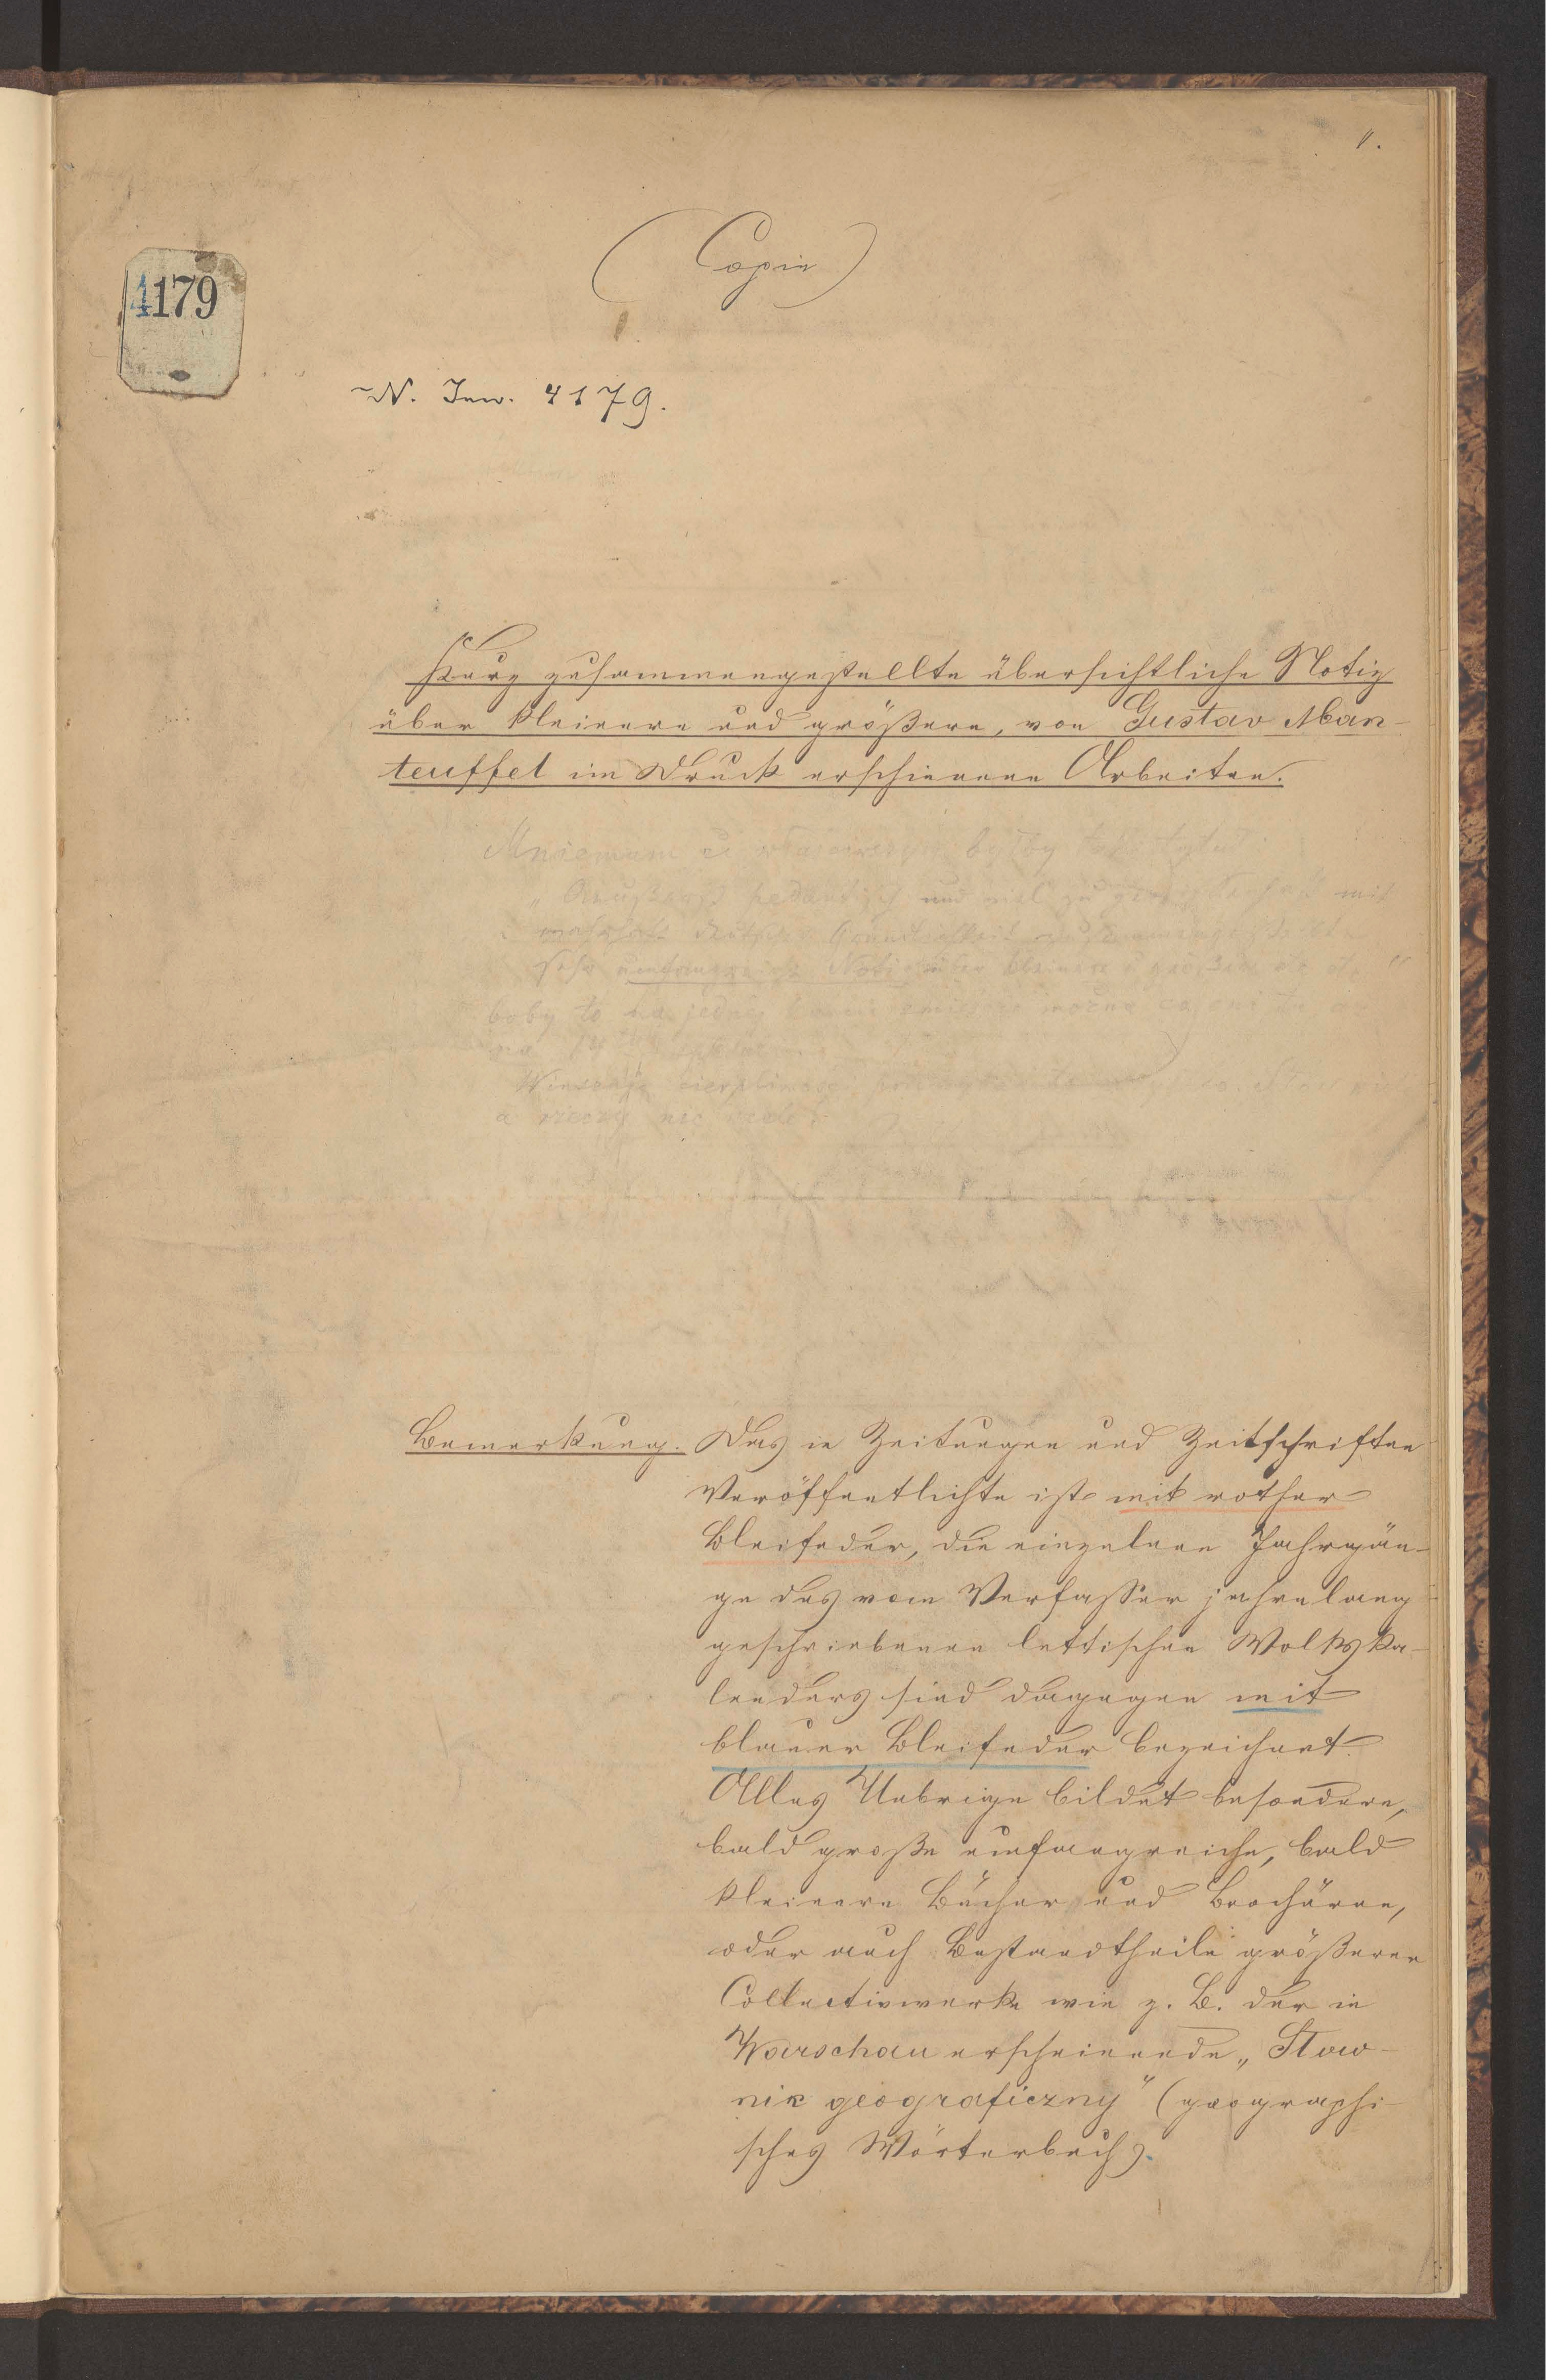 1.
(Copie)
4179
N. Inw. 4179.
Kurz zusammengestellte übersichtliche Notiz
über kleinere und größere, von Gustav Man-
teuffel im Druck erschienene Arbeiten.
Mniemam że by
" pedantisch und viel zu mit
deutscher Gründlichkeit
sehr umfangreiche Notiz über kleinere u größere etc etc "
boby to na jednej można
na
Winszuję cierpliwości
a rzeczy nie wiele.
Bemerkung. Das in Zeitungen und Zeitschriften
Veröffentlichte ist mit rother
Bleifeder, die einzelnen Jahrgän-
ge des vom Verfasser jahrelang
geschriebenen lettischen Wolkska-
lenders sind dagegen mit
blauer Bleifeder bezeichnet.
Alles Uebrige bildet besondere,
bald große umfangreiche, bald
kleinere Bücher und Brochüren,
oder auch Bestandtheile größerer
Collectivwerke wie z. B. der in
Warschau erscheinende „Słow-
nik geograficzny" (geographi-
sches Wörterbuch).